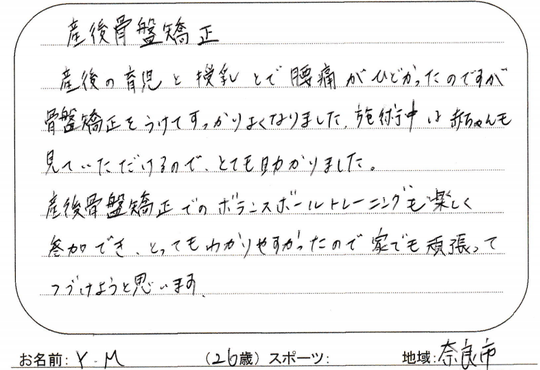 産後骨盤矯正
産後の育児と授乳とで腰痛がひどかったのですが
骨盤矯正をうけてすっかりよくなりました。施術中は赤ちゃんも
見ていただけるので、とても助かりました。
産後骨盤矯正でのバランスボールトレーニングも楽しく
参加でき、とってもわかりやすかったので家でも頑張って
つづけようと思います。
お名前: Y.M (26歳) スポーツ: 地域: 奈良市